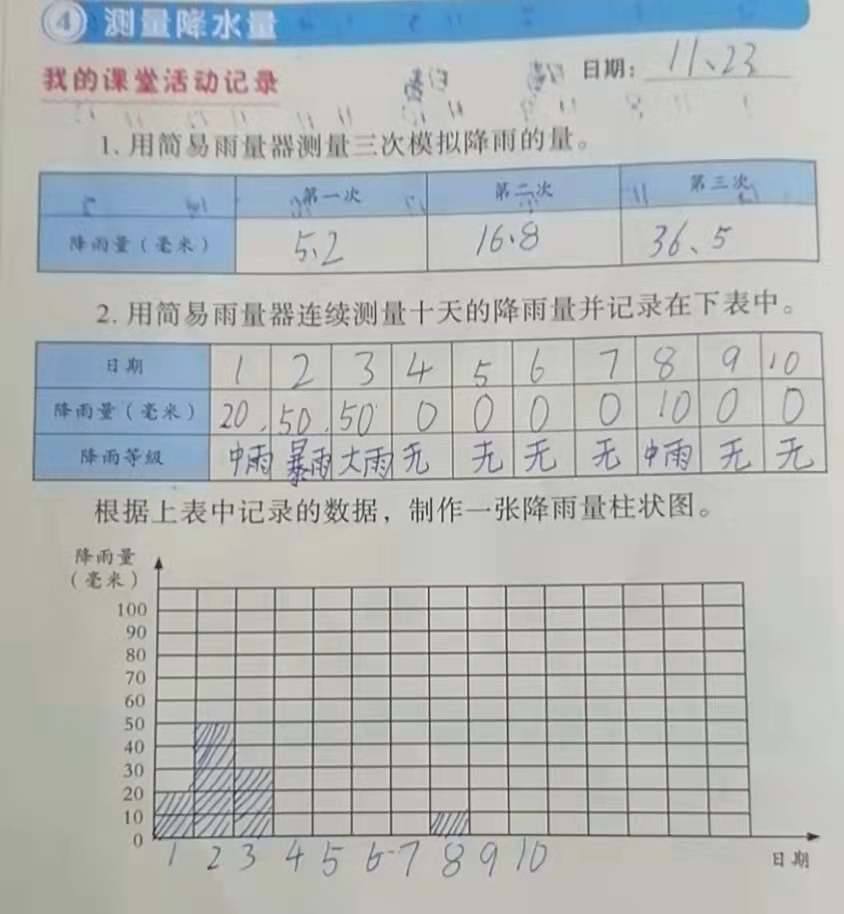 4 测量降水量
我的课堂活动记录 日期：11、23
1. 用简易雨量器测量三次模拟降雨的量。
第一次 第二次 第三次
降雨量（毫米） 5、2 16、8 36、5
2. 用简易雨量器连续测量十天的降雨量并记录在下表中。
日期 1 2 3 4 5 6 7 8 9 10
降雨量（毫米） 20 50 50 0 0 0 0 10 0 0
降雨等级 中雨 暴雨 大雨 无 无 无 无 中雨 无 无
根据上表中记录的数据，制作一张降雨量柱状图。
降雨量
（毫米）
100
90
80
70
60
50
40
30
20
10
0
1 2 3 4 5 6 7 8 9 10
日期